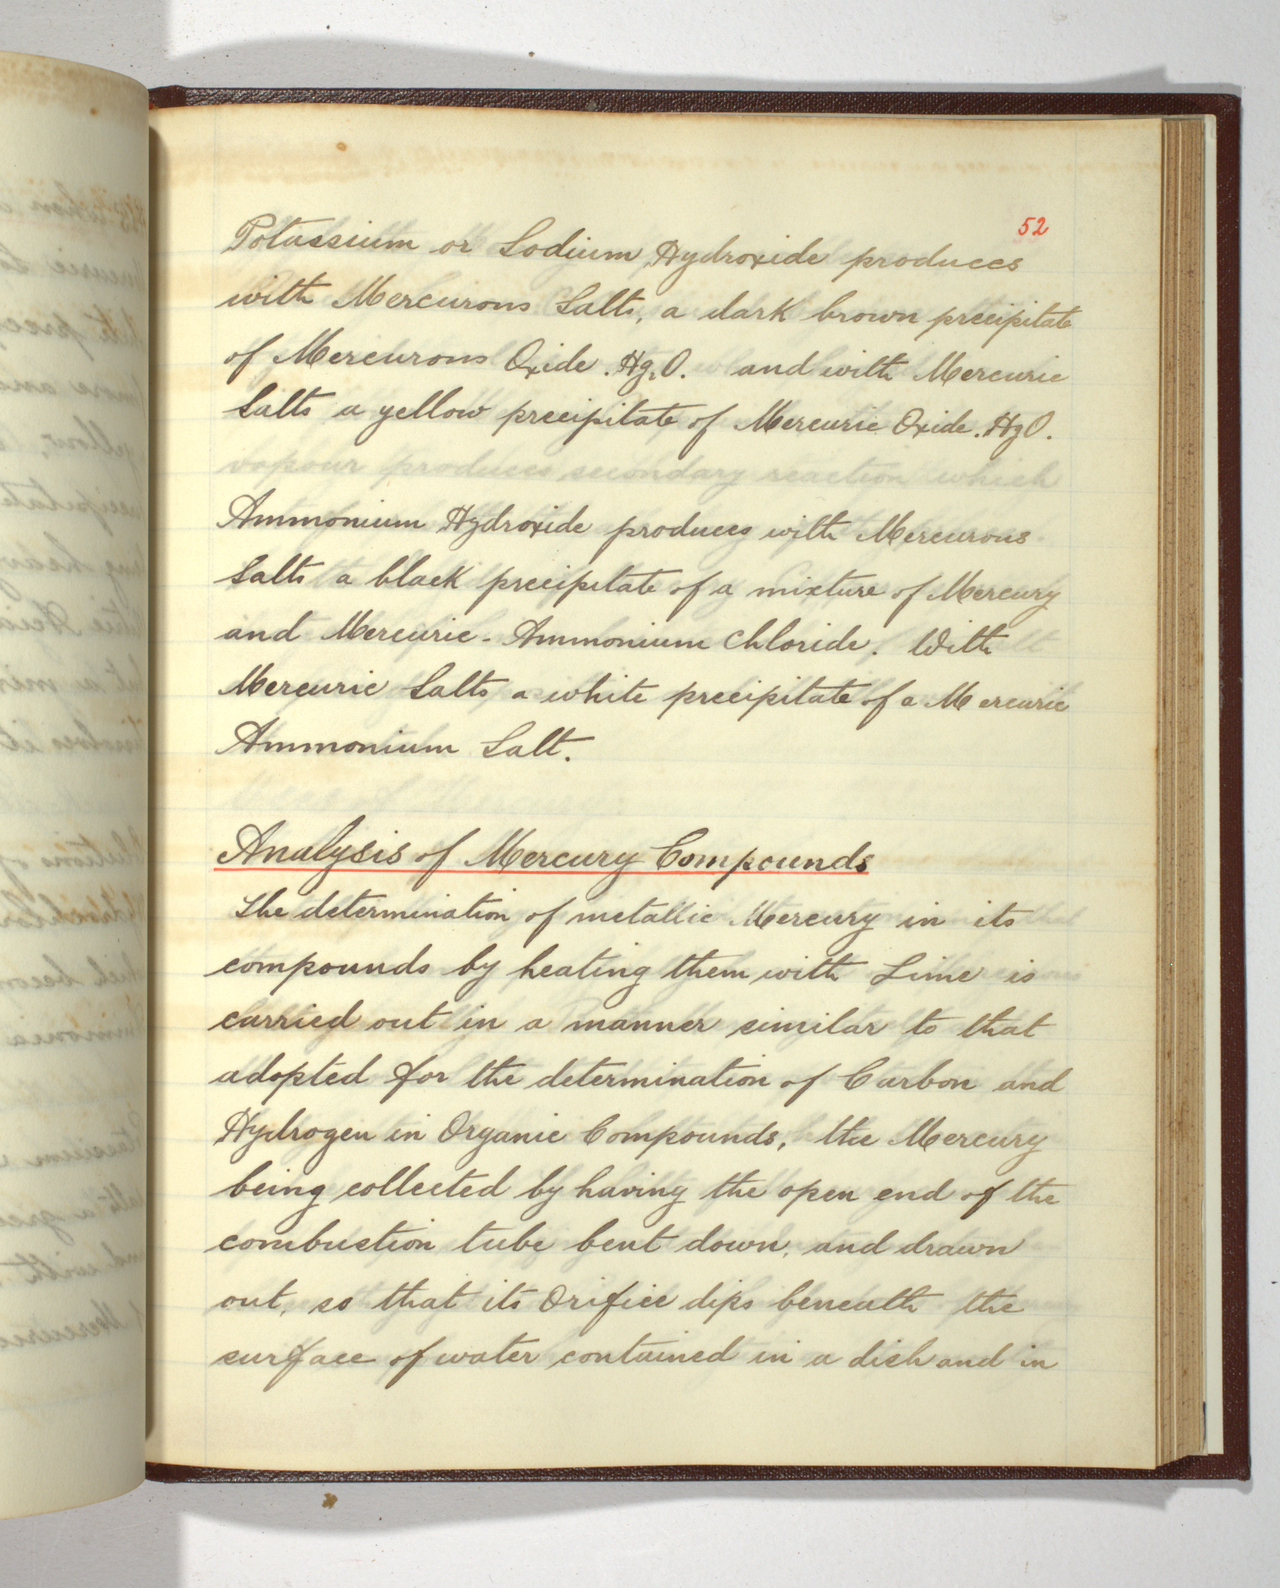 52
Potassium or Sodium Hydroxide produces
with Mercurous Salts, a dark brown precipitate
of Mercurous Oxide. Hg₂O. and with Mercuric
Salts a yellow precipitate of Mercuric Oxide. HgO.
Ammonium Hydroxide produces with Mercurous
Salts a black precipitate of a mixture of Mercury
and Mercuric-Ammonium Chloride. With
Mercuric Salts a white precipitate of a Mercuric
Ammonium Salt.
Analysis of Mercury Compounds
The determination of metallic Mercury in its
compounds by heating them with Lime is
carried out in a manner similar to that
adopted for the determination of Carbon and
Hydrogen in Organic Compounds, the Mercury
being collected by having the open end of the
combustion tube bent down, and drawn
out, so that its Orifice dips beneath the
surface of water contained in a dish and in